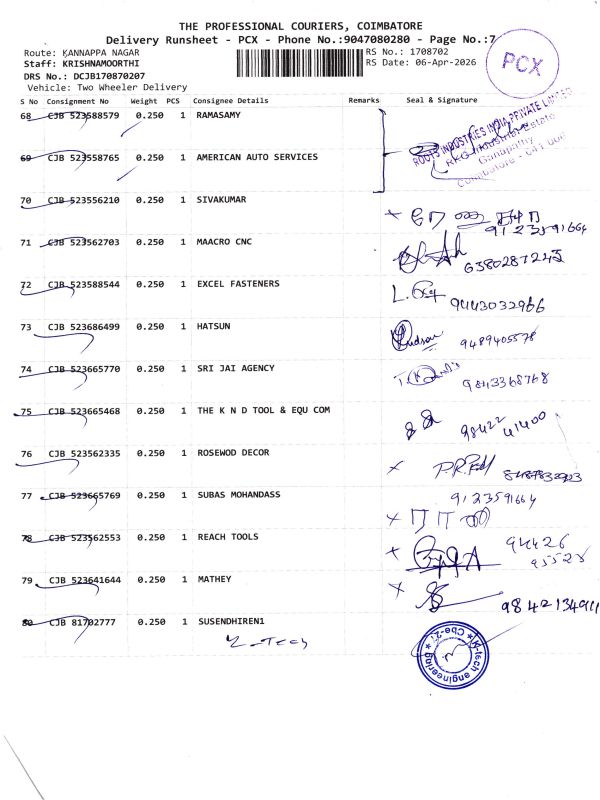 THE PROFESSIONAL COURIERS, COIMBATORE
Delivery Runsheet - PCX - Phone No.:9047080280 - Page No.:7
Route: KANNAPPA NAGAR
RS No.: 1708702
Staff: KRISHNAMOORTHI
RS Date: 06-Apr-2026
DRS No.: DCJB170870207
Vehicle: Two Wheeler Delivery
PCX
S No Consignment No Weight PCS Consignee Details Remarks Seal & Signature
68 CJB 523588579 0.250 1 RAMASAMY
ROOTS INDUSTRIES INDIA PRIVATE LIMITED
RKG Industrial Estate
Ganapathy
Coimbatore - 641 006
69 CJB 523558765 0.250 1 AMERICAN AUTO SERVICES
70 CJB 523556210 0.250 1 SIVAKUMAR
9123591664
71 CJB 523562703 0.250 1 MAACRO CNC
6380287245
72 CJB 523588544 0.250 1 EXCEL FASTENERS
9443032966
73 CJB 523686499 0.250 1 HATSUN
9489405578
74 CJB 523665770 0.250 1 SRI JAI AGENCY
9843368768
75 CJB 523665468 0.250 1 THE K N D TOOL & EQU COM
98422 41400
76 CJB 523562335 0.250 1 ROSEWOD DECOR
77 CJB 523665769 0.250 1 SUBAS MOHANDASS
9123591664
78 CJB 523562553 0.250 1 REACH TOOLS
94426
95528
79 CJB 523641644 0.250 1 MATHEY
9842134911
80 CJB 81702777 0.250 1 SUSENDHIREN1
Y-Tech
Y-tech engineering
Cbe-27